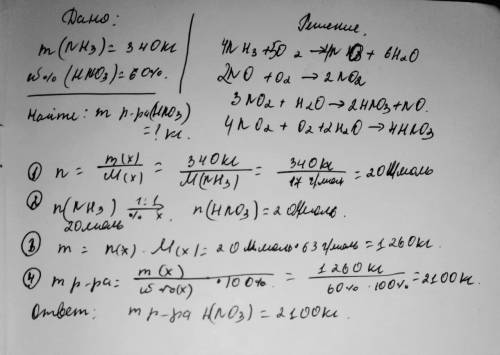 Дано:
m(NH3) = 340кг
ω% (HNO3) = 60%.
Найти: m р-ра(HNO3)
= ? кг.
Решение.
4NH3 + 5O2 → 4NO + 6H2O
2NO + O2 → 2NO2
3NO2 + H2O → 2HNO3 + NO.
4NO2 + O2 + 2H2O → 4HNO3
① n = m(x)/M(x) = 340кг/M(NH3) = 340кг/17 г/моль = 20
② n(NH3) 1:1 n(HNO3) = 20
20
③ m = n(x) · M(x) = 20 · 63 г/моль = 1260кг.
④ m р-ра = m(x)/ω%(x) · 100% = 1260кг/60% · 100% = 2100кг.
Ответ: m р-ра H(NO3) = 2100кг.